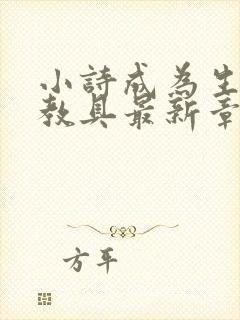 小詩成為生
教具最新章
方平